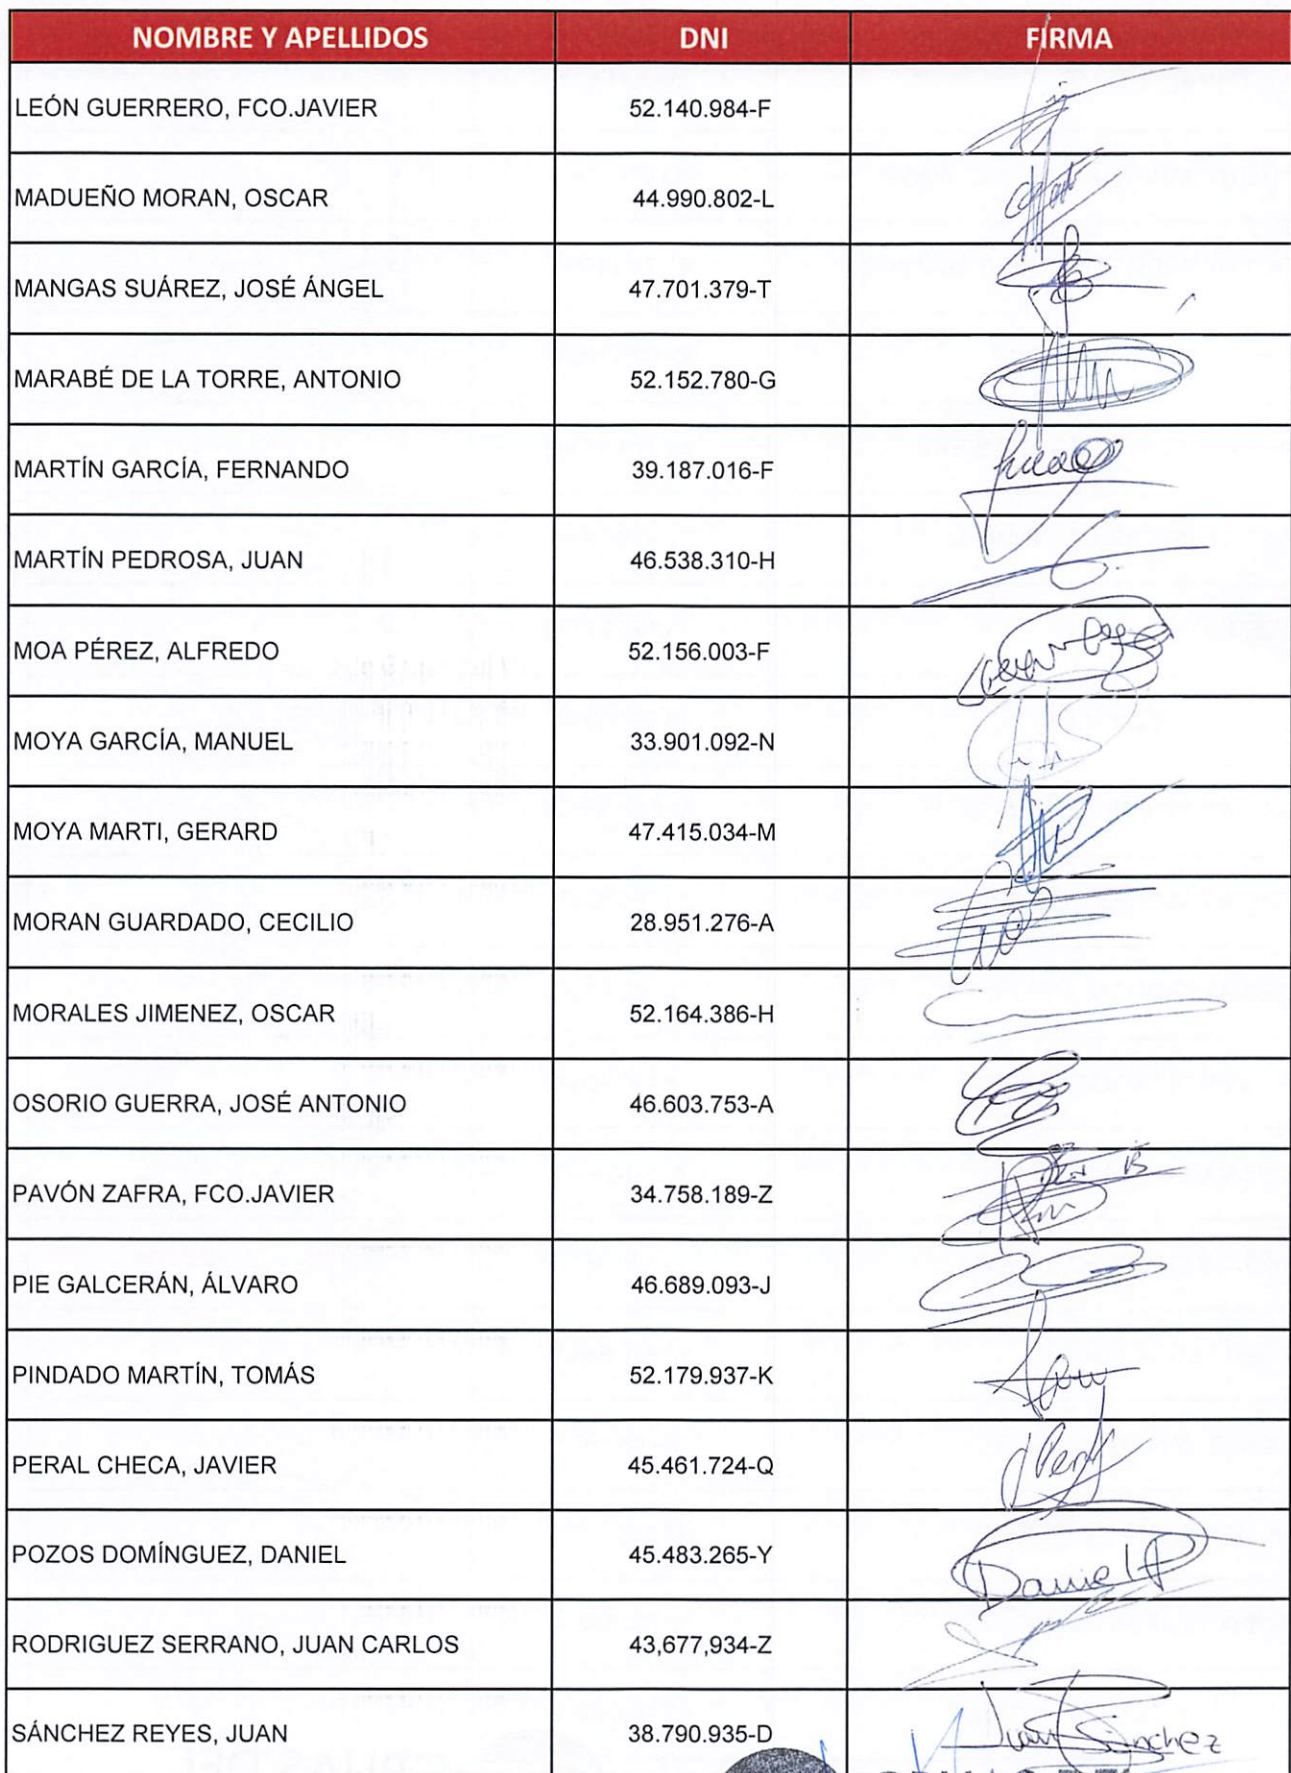 NOMBRE Y APELLIDOS DNI FIRMA
LEÓN GUERRERO, FCO.JAVIER 52.140.984-F
MADUEÑO MORAN, OSCAR 44.990.802-L
MANGAS SUÁREZ, JOSÉ ÁNGEL 47.701.379-T
MARABÉ DE LA TORRE, ANTONIO 52.152.780-G
MARTÍN GARCÍA, FERNANDO 39.187.016-F
MARTÍN PEDROSA, JUAN 46.538.310-H
MOA PÉREZ, ALFREDO 52.156.003-F
MOYA GARCÍA, MANUEL 33.901.092-N
MOYA MARTI, GERARD 47.415.034-M
MORAN GUARDADO, CECILIO 28.951.276-A
MORALES JIMENEZ, OSCAR 52.164.386-H
OSORIO GUERRA, JOSÉ ANTONIO 46.603.753-A
PAVÓN ZAFRA, FCO.JAVIER 34.758.189-Z
PIE GALCERÁN, ÁLVARO 46.689.093-J
PINDADO MARTÍN, TOMÁS 52.179.937-K
PERAL CHECA, JAVIER 45.461.724-Q
POZOS DOMÍNGUEZ, DANIEL 45.483.265-Y Daniel P
RODRIGUEZ SERRANO, JUAN CARLOS 43,677,934-Z
SÁNCHEZ REYES, JUAN 38.790.935-D Juan Sánchez